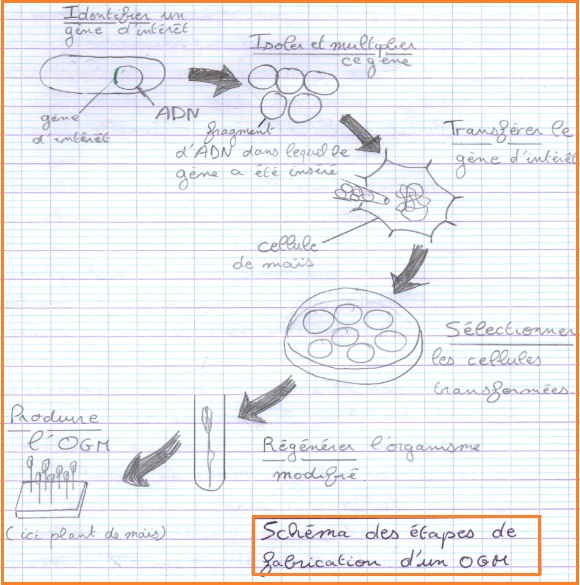 Identifier un
gène d'intérêt
Isoler et multiplier
ce gène
gène
d'intérêt
ADN
fragment
d'ADN dans lequel le
gène a été inséré
Transférer le
gène d'intérêt
cellule
de maïs
Sélectionner
les cellules
transformées
Régénérer l'organisme
modifié.
Produire
l'OGM
(ici plant de maïs)
Schéma des étapes de
fabrication d'un OGM